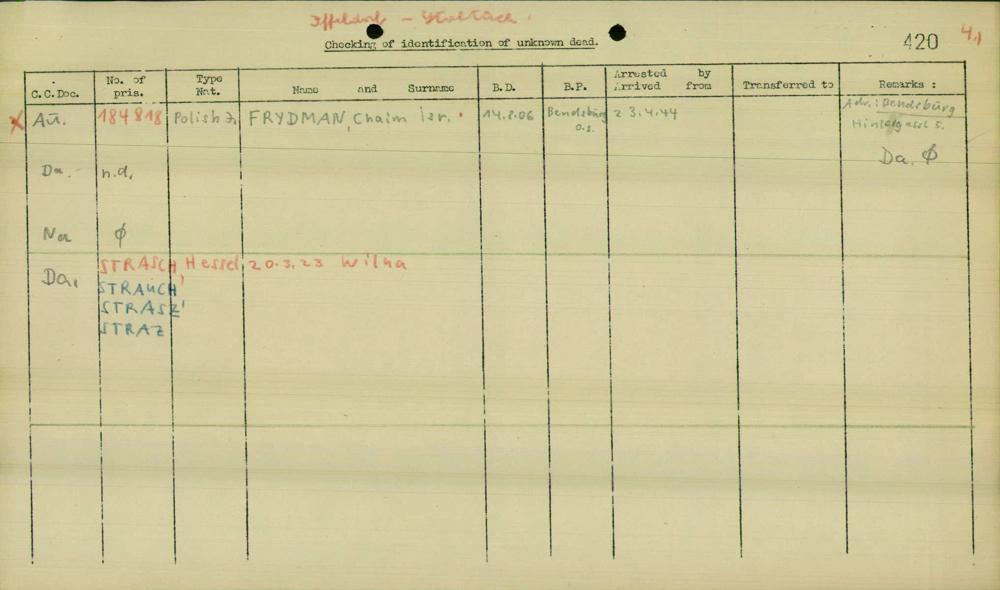 Iffeldorf – Staltach.
Checking of identification of unknown dead.
420 4.)
C.C.Doc. No. of pris. Type Nat. Name and Surname B.D. B.P. Arrested by Arrived from Transferred to Remarks :
x Au. 184818 Polish J. FRYDMAN, Chaim Isr. 14.8.06 Bendsburg o.s. 23.4.44 Adr.: Bendsburg
Da. Ø
Da. n.d.
Na Ø
Da. STRASCH, Hessel, 20.3.23 Wilna
STRAUCH
STRASZ
STRAZ